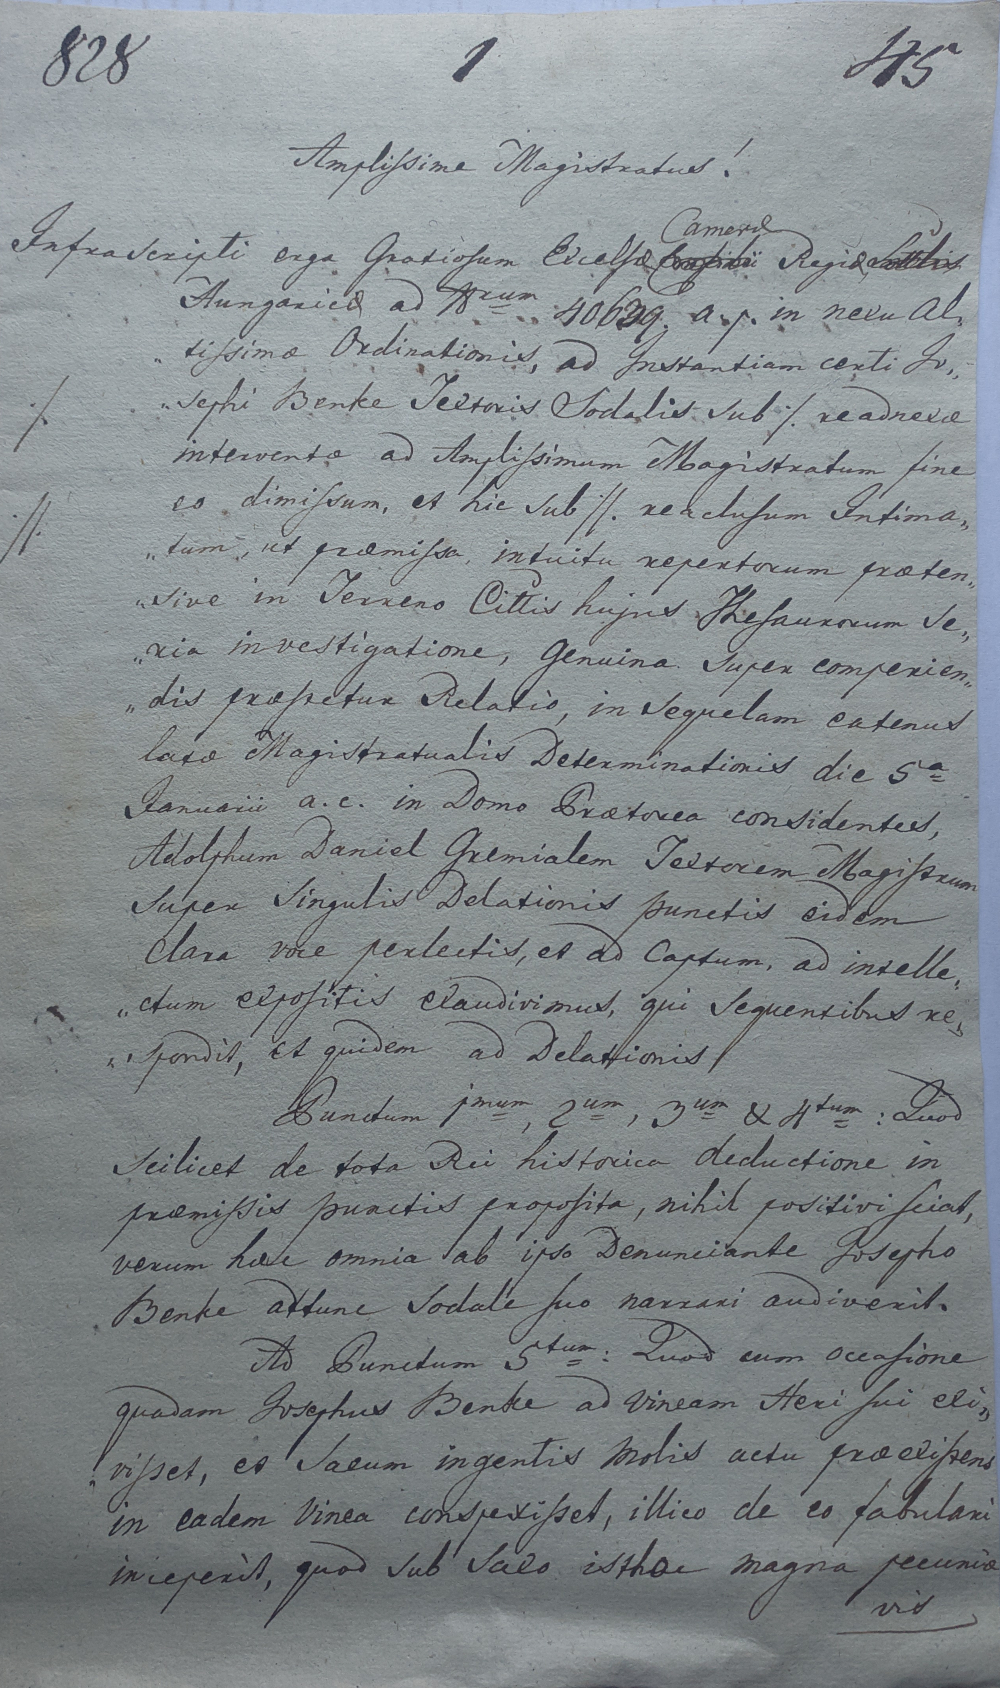 828 1 45
Amplissime Magistratus!
Infrascripti erga Gratiosum Excelsæ Cameræ Regiæ
Hungaricæ ad Nrum 40639. a. p. in nexu Al„
„tissimæ Ordinationis, ad Instantiam certi Jo„
./. „sephi Benke Textoris Sodalis sub ./. readnexæ
interventæ ad Amplissimum Magistratum fine
.//. eo dimissum, et hic sub .//. reaclusum Intima„
„tum, ut præmissa, intuitu repertorum præten„
„sive in Terreno Cittis hujus Thesaurorum se„
„ria investigatione, genuina super comperien„
„dis præstetur Relatio, in sequelam eatenus
latæ Magistratualis Determinationis die 5a
Januarii a. c. in Domo Prætorea considentes,
Adolphum Daniel Gremialem Textorem Magistrum
super singulis Delationis punctis eidem
clara voce perlectis, et ad Captum, ad intelle„
„ctum expositis exaudivimus, qui sequentibus re„
„spondit, et quidem ad Delationis
Punctum 1mum, 2um, 3um & 4tum: Quod
scilicet de tota Rei historica deductione in
præmissis punctis proposita, nihil positivi sciat,
verum hæc omnia ab ipso Denunciante Josepho
Benke attunc sodale suo narrari audiverit.
Ad Punctum 5tum: Quod cum occasione
quadam Josephus Benke ad vineam Heri sui exi„
„visset, et saxum ingentis molis actu præexistens
in eadem vinea conspexisset, illico de eo fabulari
inceperit, quod sub saxo isthoc magna pecuniæ
vis